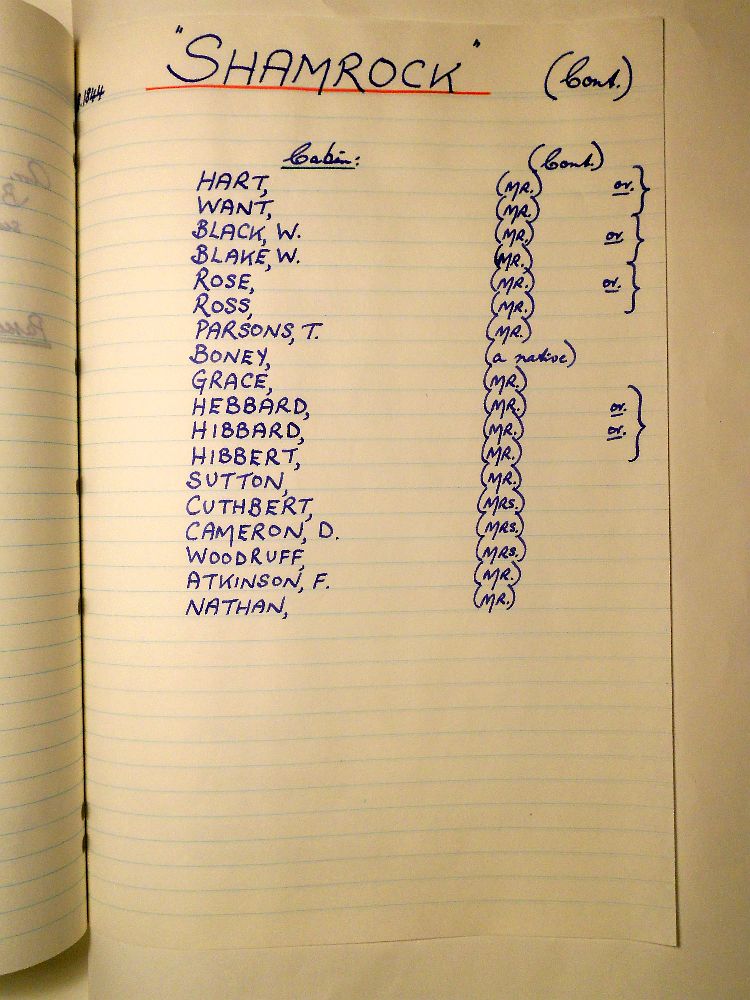 "SHAMROCK" (Cont.)
1844
Cabin: (Cont.)
HART, (MR.) or.
WANT, (MR.)
BLACK, W. (MR.) or
BLAKE, W. (MR.)
ROSE, (MR.) or.
ROSS, (MR.)
PARSONS, T. (MR.)
BONEY, (a native)
GRACE, (MR.)
HEBBARD, (MR.) or.
HIBBARD, (MR.) or.
HIBBERT, (MR.)
SUTTON, (MR.)
CUTHBERT, (MRS.)
CAMERON, D. (MRS.)
WOODRUFF, (MRS.)
ATKINSON, F. (MR.)
NATHAN, (MR.)